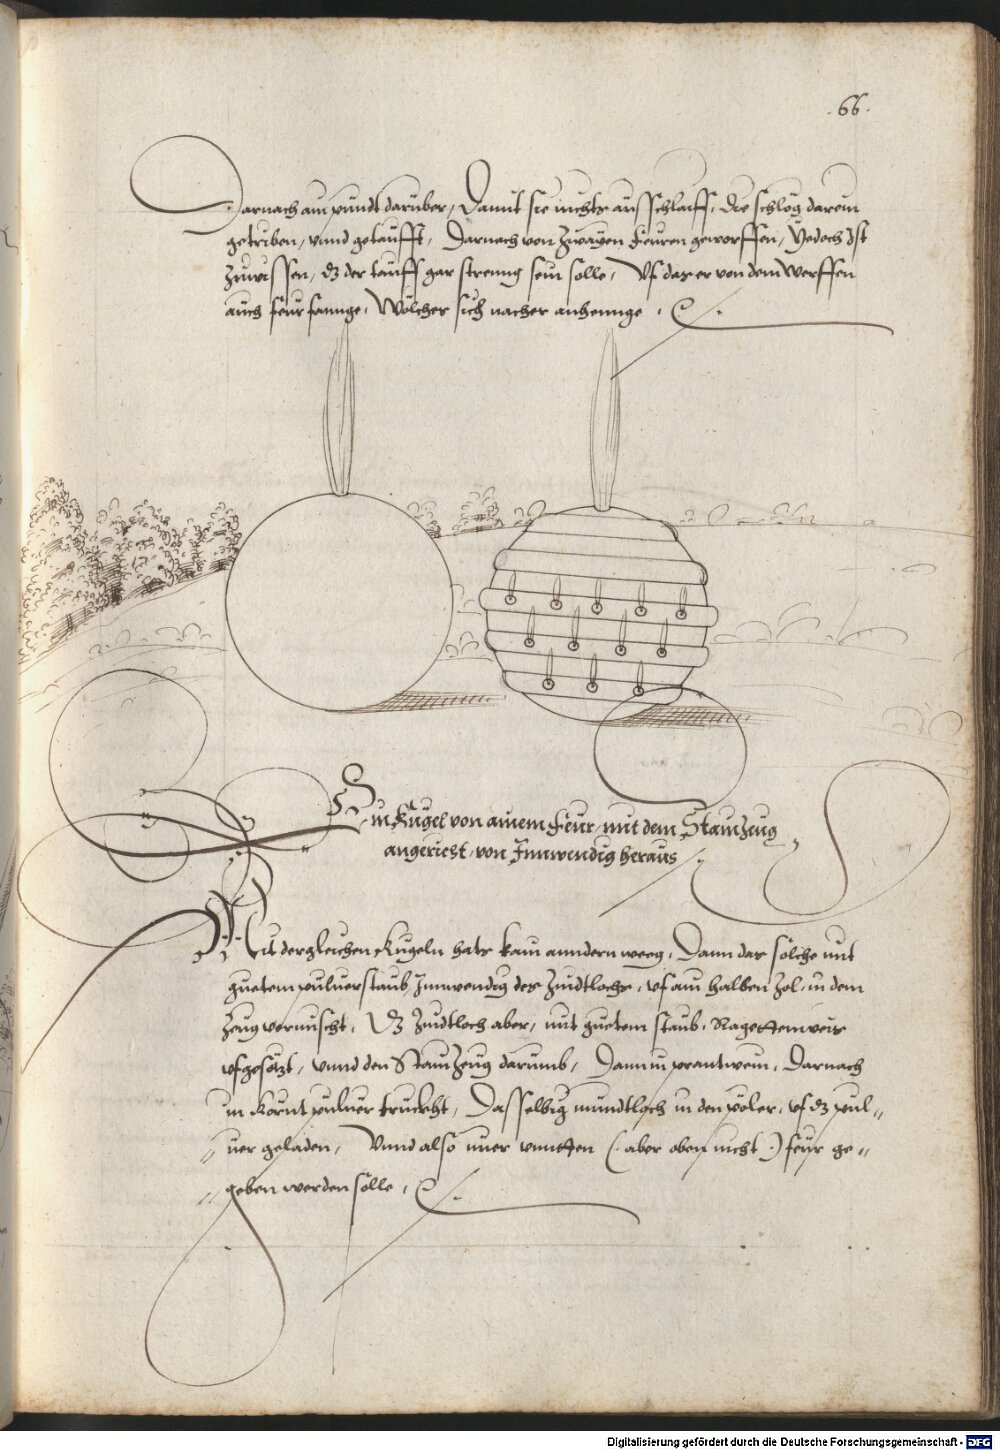 .66.
Darnach ain pundt darüber, Damit sie nichts ausschlaiff, die schlög darein
getriben, vnnd getaufft, Darnach von Zwayen feuren geworffen, Yedoch Ist
Zuwissen, dz der tauff gar strenng sein solle, Vf das er von dem Werffen
auch feur fannge, Wölcher sich nacher anhennge.
Ein Kugel von ainem Feur, mit dem Stainzeug
angericht, von Innwendig heraus
Mit dergleichen Kugeln hats kain anndern weeg, Dann das solche mit
guetem puluerstaub Innwendig des Zündtlochs, vf ain halben Zol, in dem
Zeug vermischt, Dz Zündtloch aber, mit guetem staub, Ragettenweis
vfgesözt, vnnd den Stainzeug darumb, Dann in prantwein, Darnach
in Körnt puluer truckht, Dasselbig mundtloch in den pöler, vf dz pul=
uer geladen, Vnnd also nuer vnnten (aber oben nicht) feur ge=
geben werden sölle.
Digitalisierung gefördert durch die Deutsche Forschungsgemeinschaft - DFG